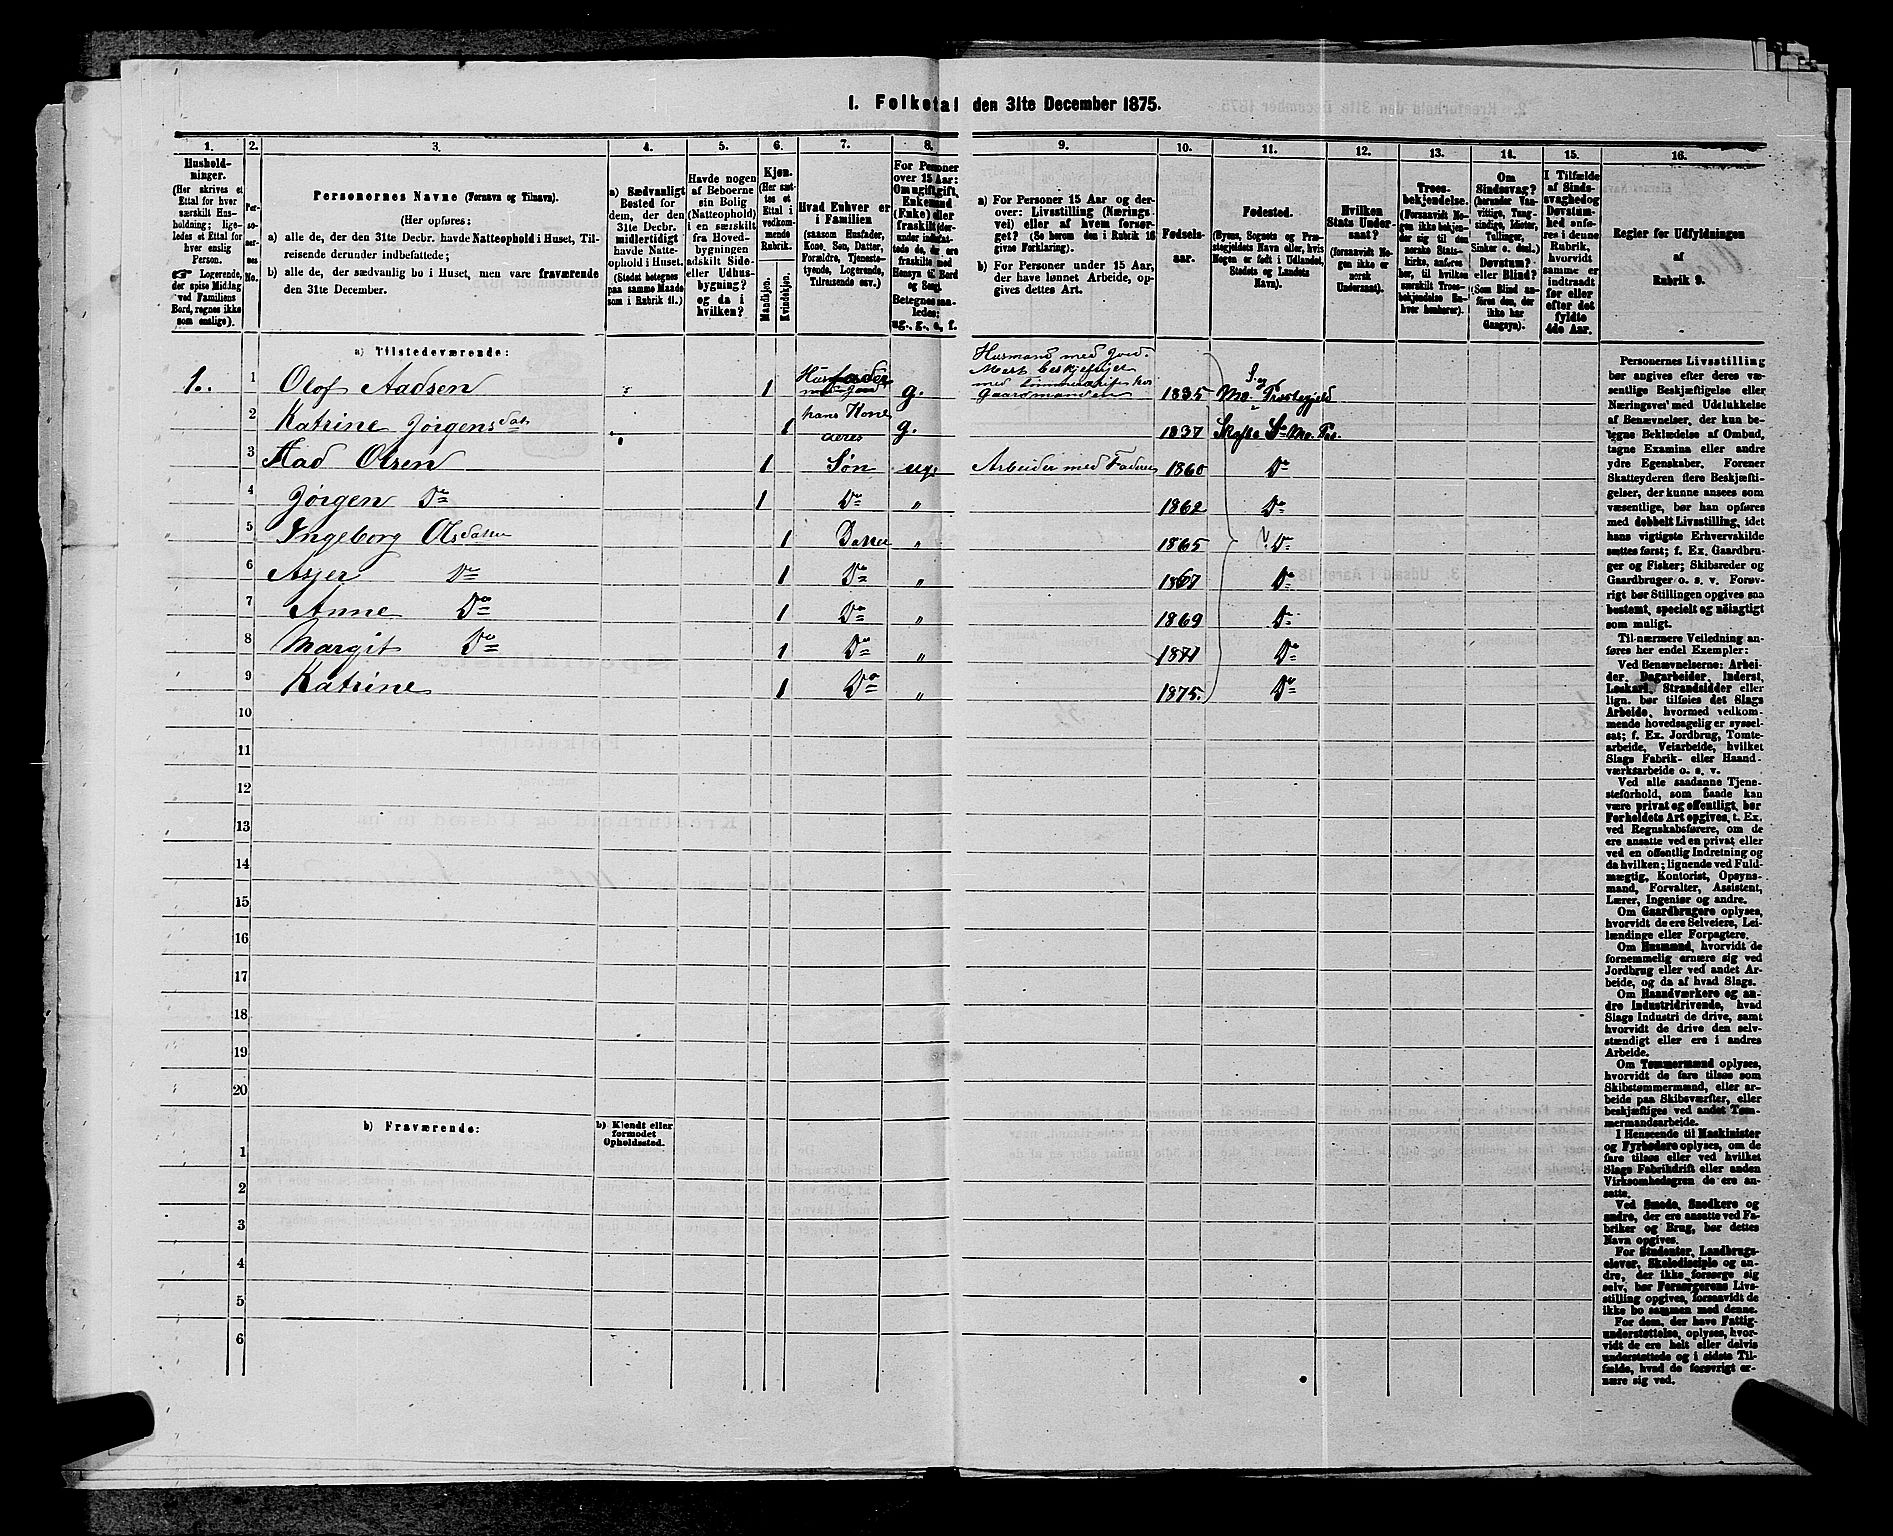 1. Folketal den 31te December 1875.
1. 2. 3. 4. 5. 6. 7. 8. 9. 10. 11. 12. 13. 14. 15. 16.
Husholdninger.
(Her skrives et
Ettal for hver
særskilt Husholdning; ligeledes et Ettal for
hver enslig
Person.
☞ Logerende,
der spise Middag
ved Familiens
Bord, regnes ikke
som enslige).
Personernes No.
Personernes Navne (Fornavn og Tilnavn).
(Her opføres:
a) alle de, der den 31te Decbr. havde Natteophold i Huset, Tilreisende derunder indbefattede;
b) alle de, der sædvanlig bo i Huset, men vare fraværende
den 31te December.
a) Sædvanligt
Bosted for
dem, der den
31te Decbr.
midlertidigt
havde Natteophold i Huset.
(Stedet betegnes
paa samme Maade
som i Rubrik 11.)
Havde nogen
af Beboerne
sin Bolig
(Natteophold)
i en særskilt
fra Hovedbygningen
adskilt Side-
eller Udhusbygning?
og da i
hvilken?
Kjøn.
(Her sættes et
Ettal i
vedkommende
Rubrik.
Mandkjøn.
Kvindekjøn.
Hvad Enhver er
i Familien
(saasom Husfader,
Kone, Søn, Datter,
Forældre, Tjenestetyende, Logerende,
Tilreisende osv.)
For Personer
over 15 Aar:
Om ugift, gift,
Enkemand
(Enke) eller
fraskilt
Betegnes saaledes:
ug., g., e., f.
a) For Personer 15 Aar og derover: Livsstilling (Næringsvei) eller af hvem forsørget? (Se herom den i Rubrik 16
givne Forklaring).
b) For Personer under 15 Aar,
der have lønnet Arbeide, opgives dettes Art.
Fødselsaar.
Fødested.
(Byens, Sognets og Præstegjeldets Navn eller, hvis
Nogen er født i Udlandet,
Stedets og Landets
Navn).
Hvilken
Stats Undersaat?
(forsaavidt Nogen ikke er
norsk
Undersaat).
Troesbekjendelse.
(Forsaavidt Nogen ikke bekjender sig til den
norske Statskirke, anføres
her, til hvilken
særskilt Troesbekjendelse Enhver henhører).
Om
Sindssvag?
(herunder Vanvittige, Tungsindige, Idioter,
Tullinger,
Sinker o. desl.)
Døvstum?
eller Blind?
(Som Blind anføres den, der
ikke har
Gangsyn).
I Tilfælde
af Sindssvaghed og
Døvstumhed anføres i denne
Rubrik,
hvorvidt
samme er
indtraadt
før eller
efter det
fyldte
4de Aar.
Regler for Udfyldningen
af
Rubrik 9.
a) Tilstedeværende:
1. 1 Olof Aadsen 1 Husfader g. Husmand med Jord. Mest beskjeftiget med tømmerdrift hos Gaardmanden 1835 Mo Præstegjeld
2 Katrine Jørgensdat 1 hans Kone g. 1837 Skafsø S. Mo. Præ.
3 Aad Olsen 1 Søn ug. Arbeider med Faderen 1860 Do
4 Jørgen Do 1 Do „ 1862 Do
5 Ingeborg Olsdatter 1 Datter „ 1865 Do
6 Asjer Do 1 Do „ 1867 Do
7 Anne Do 1 Do „ 1869 Do
8 Margit Do 1 Do „ 1871 Do
9 Katrine 1 Do „ 1875. Do
10
11
12
13
14
15
16
17
18
19
20
b) Fraværende: b) Kjendt eller
formodet
Opholdssted.
1
2
3
4
5
6
Personernes Livsstilling
bør angives efter deres væsentlige Beskjæftigelse eller
Næringsvei med Udelukkelse
af Benævnelser, der kun betegne Beklædelse af Ombud,
tagne Examina eller andre
ydre Egenskaber. Forener
Skatteyderen flere Beskjæftigelser, der kunne ansees som
væsentlige, bør han opføres
med dobbelt Livsstilling, idet
hans vigtigste Erhvervskilde
sættes først; f. Ex. Gaardbruger og Fisker; Skibsreder og
Gaardbruger o. s. v. Forøvrigt bør Stillingen opgives saa
bestemt, specielt og nøiagtigt
som muligt.
Til nærmere Veiledning anføres her endel Exempler:
Ved Benævnelserne: Arbeider, Dagarbeider, Inderst,
Løskarl, Strandsidder eller
lign. bør tilføies det Slags
Arbeide, hvormed vedkommende hovedsagelig er sysselsat; f. Ex. Jordbrug, Tomtearbeide, Veiarbeide, hvilket
Slags Fabrik- eller Haandværksarbeide o. s. v.
Ved alle saadanne Tjenesteforhold, som baade kan
være privat og offentligt, bør
Forholdets Art opgives, t. Ex.
ved Regnskabsførere, om de
ere ansatte ved en privat eller
ved en offentlig Indretning og
da hvilken; lignende ved Fuldmægtig, Kontorist, Opsynsmand, Forvalter, Assistent,
Lærer, Ingeniør og andre.
Om Gaardbrugere oplyses,
hvorvidt de ere Selveiere, Leilændinge eller Forpagtere.
Om Husmænd, hvorvidt de
fornemmelig ernære sig ved
Jordbrug eller ved andet Arbeide, og da af hvad Slags.
Om Haandværkere og andre Industridrivende, hvad
Slags Industri de drive, samt
hvorvidt de drive den selvstændigt eller ere i andres
Arbeide.
Om Tømmermænd oplyses,
hvorvidt de fare tilsøs som
Skibstømmermænd, eller arbeide paa Skibsværfter, eller
beskjæftiges ved andet Tømmermandsarbeide.
I Henseende til Maskinister
og Fyrbødere oplyses, om de
fare tilsøs eller ved hvilket
Slags Fabrikdrift eller anden
Virksomhedsgren de ere ansatte.
Ved Smede, Snedkere og
andre, der ere ansatte ved Fabriker og Brug, bør dettes
Navn opgives.
For Studenter, Landbrugselever, Skoledisciple og andre, der ikke forsørge sig
selv, bør Forsørgerens Livsstilling opgives, forsaavidt de
ikke bo sammen med denne.
For dem, der have Fattigunderstøttelse, oplyses, hvorvidt de ere helt eller delvis
understøttede og i sidste Tilfælde, hvad de forøvrigt ernære sig ved.